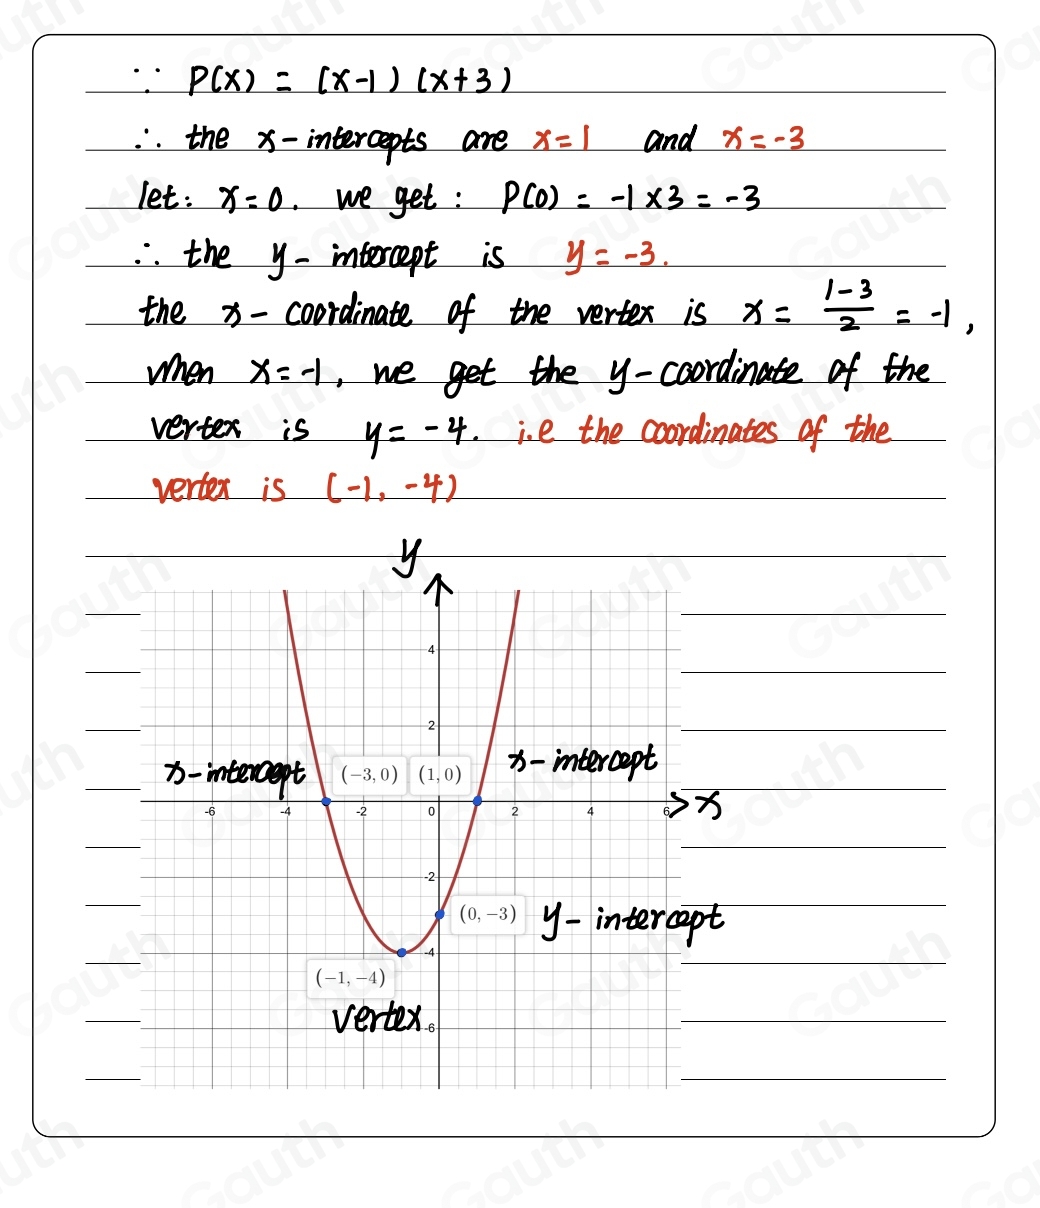 ∵ P(x) = (x-1)(x+3)
∴ the x-intercepts are x=1 and x=-3
let: x=0. we get: P(0) = -1×3 = -3
∴ the y-intercept is y=-3.
the x-coordinate of the vertex is x = \frac{1-3}{2} = -1,
when x=-1, we get the y-coordinate of the
vertex is y=-4. i.e the coordinates of the
vertex is (-1, -4)
y
4
2
x-intercept (−3, 0) (1, 0) x-intercept
-6 -4 -2 0 2 4 6 x
-2
(0, −3) y-intercept
-4
(−1, −4)
vertex -6
Gauth